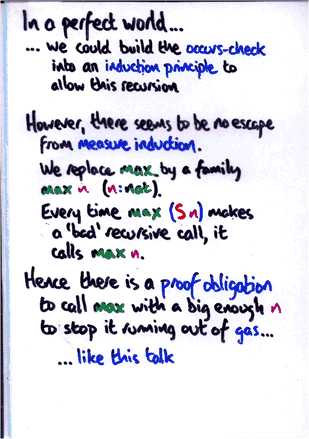 In a perfect world...
... we could build the occurs-check
into an induction principle to
allow this recursion
However, there seems to be no escape
from measure induction.
We replace max by a family
max n (n:nat).
Every time max (S n) makes
a 'bad' recursive call, it
calls max n.
Hence there is a proof obligation
to call max with a big enough n
to stop it running out of gas...
... like this talk